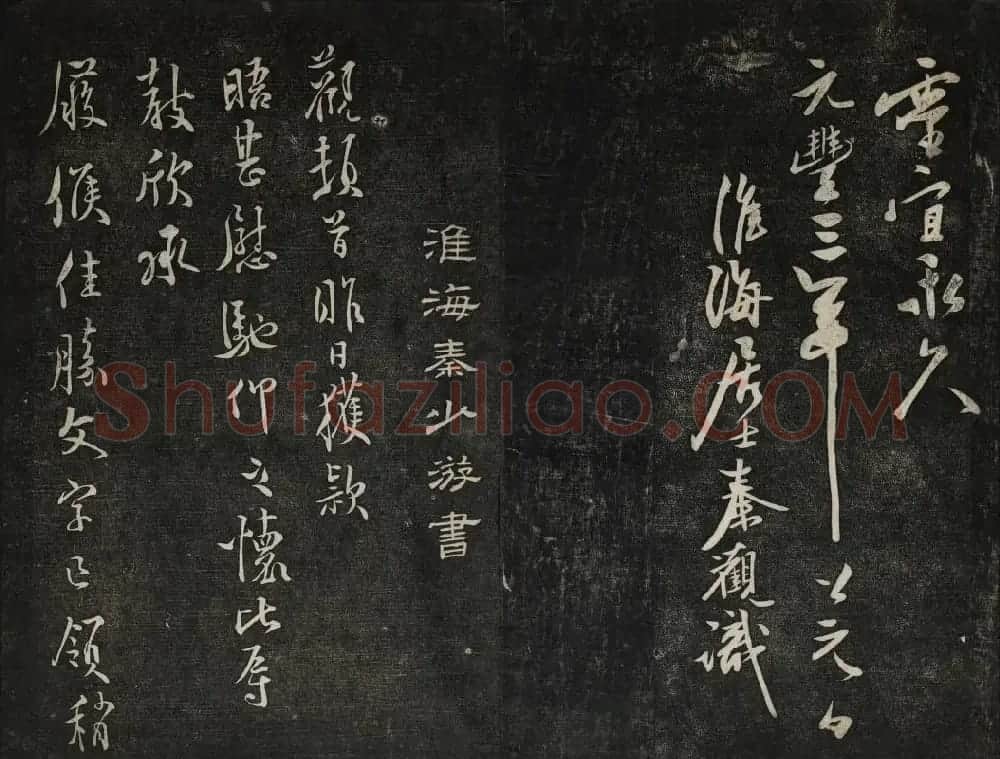 靈宜永久
元豐三年
淮海居士秦觀識
淮海秦少游書
觀頓首昨日獲款
晤甚慰馳仰之懷比辱
教欣承
履候佳勝文字已領稍
Shufaziliao.COM